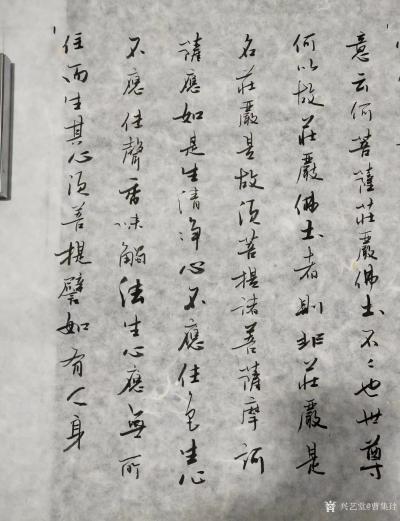 意云何菩薩莊嚴佛土不〻也世尊
何以故莊嚴佛土者則非莊嚴是
名莊嚴是故須菩提諸菩薩摩訶
薩應如是生清净心不應住色生心
不應住聲香味觸法生心應無所
住而生其心須菩提譬如有人身
兴艺堂@曹集